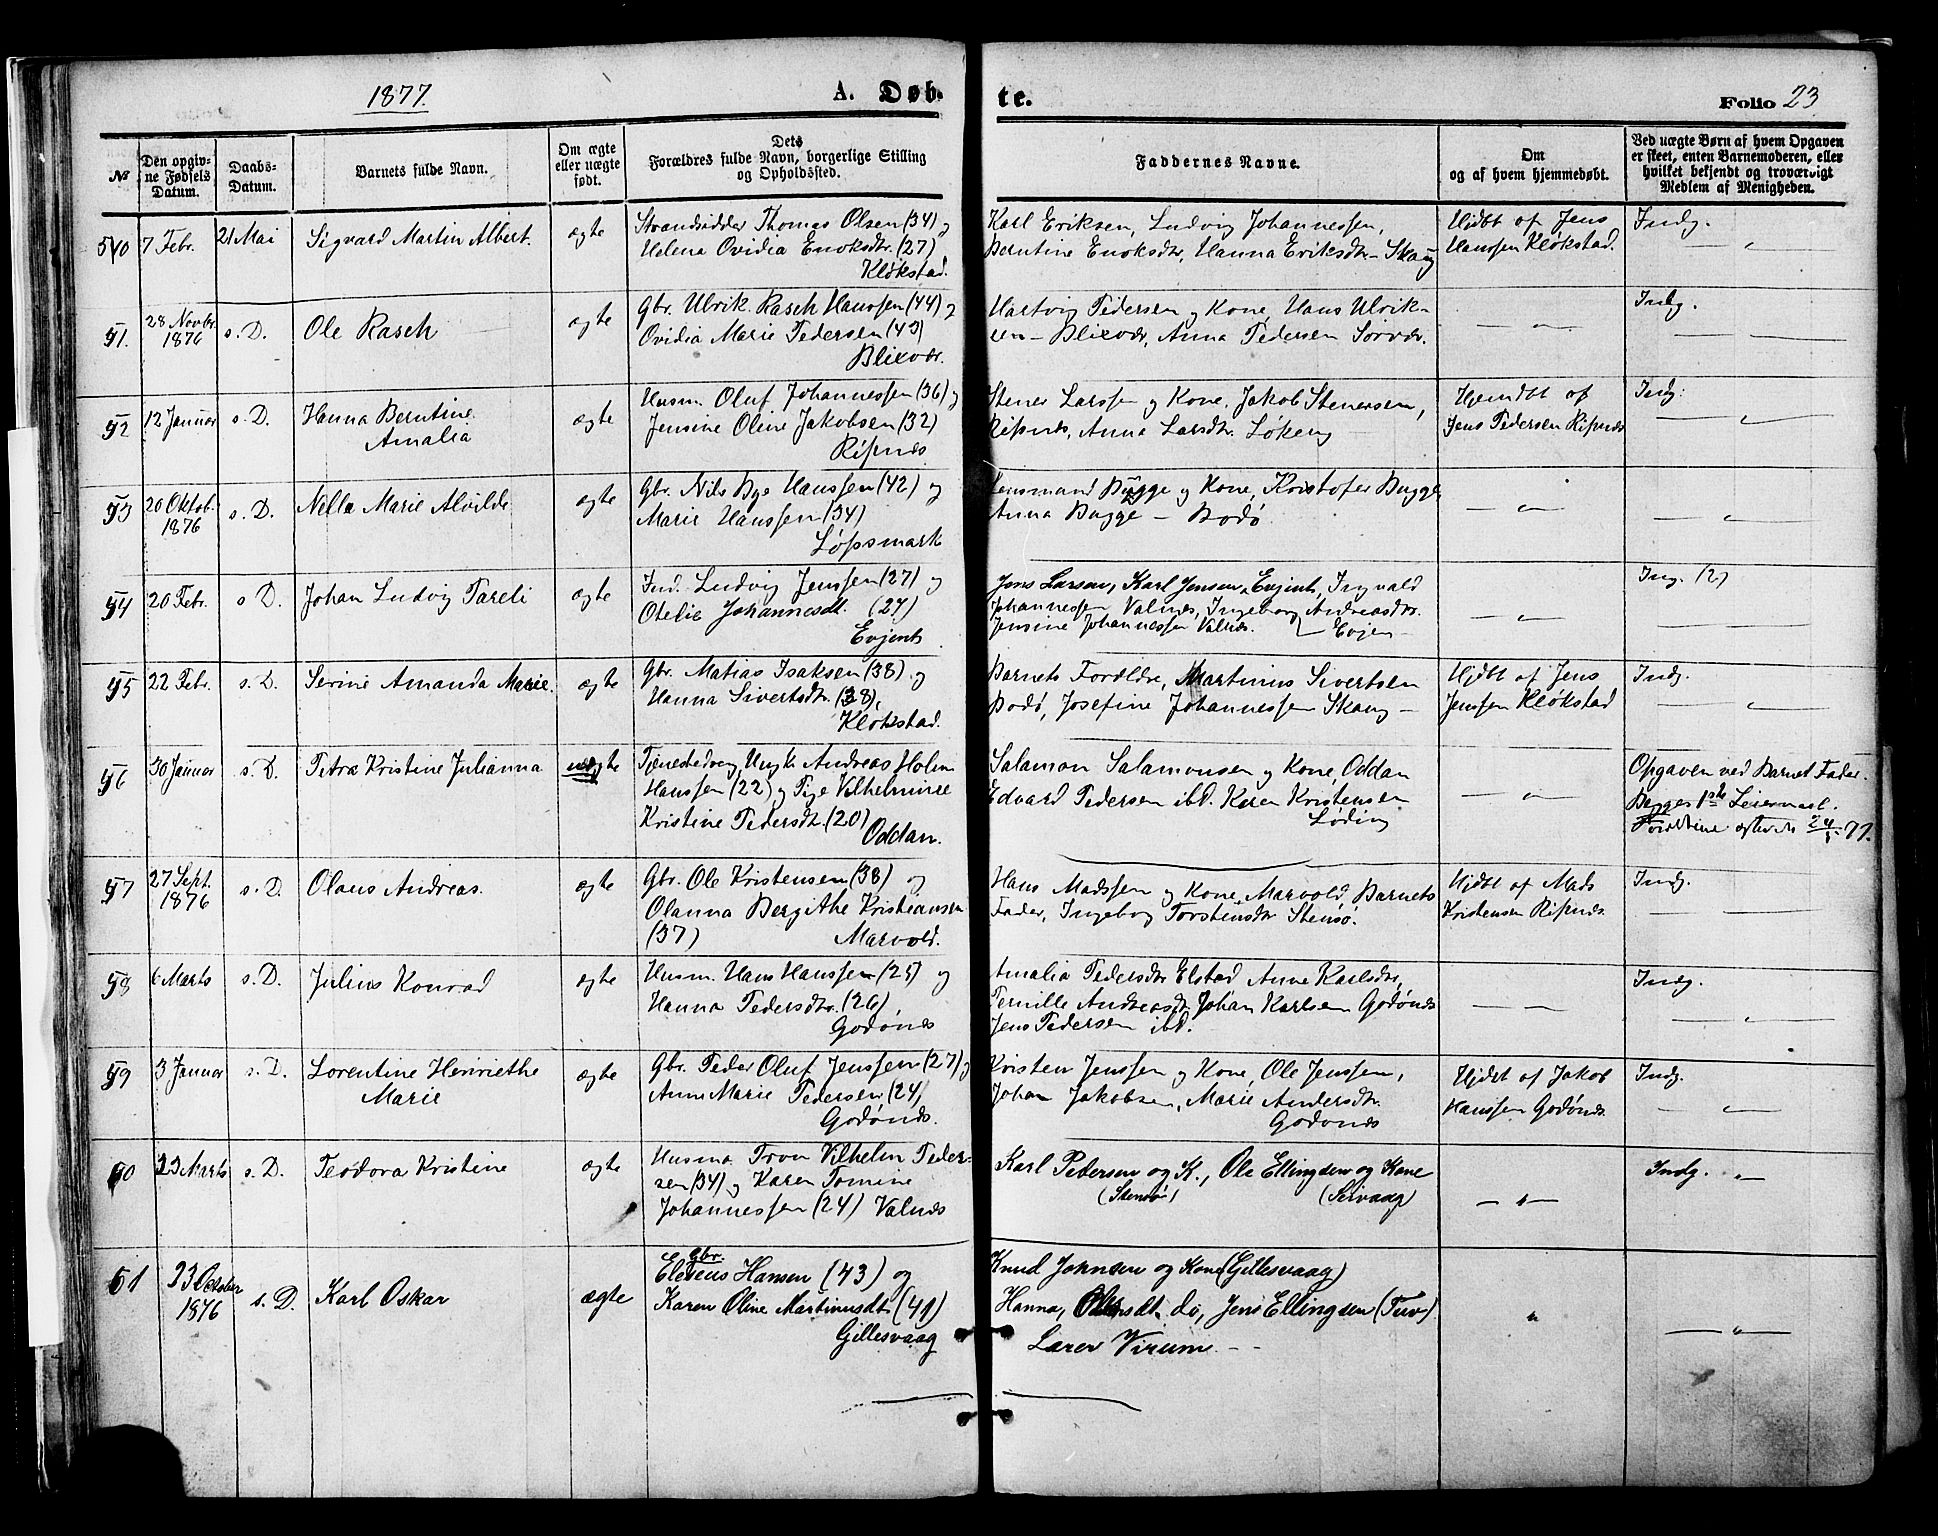 1877.
A. Døb-
te.
Folio 23
№
Den opgiv-
ne Fødsels
Datum.
Daabs-
Datum.
Barnets fulde Navn.
Om ægte
eller uægte
født.
Dets
Forældres fulde Navn, borgerlige Stilling
og Opholdssted.
Faddernes Navne.
Om
og af hvem hjemmedøbt.
Ved uægte Børn af hvem Opgaven
er skeet, enten Barnemoderen, eller
hvilket bekjendt og troværdigt
Medlem af Menigheden.
50
7 Febr.
21 Mai
Sigvard Martin Albert.
ægte
Strandsidder Thomas Olsen (34) og
Helena Ovidia Enoksdtr. (27)
Kløkstad.
Karl Eriksen, Ludvig Johannessen,
Berntine Enoksdtr, Hanna Eriksdtr - Skaug
Hjdbt af Jens
Hanssen Kløkstad.
Indg.
"
51.
28 Novbr.
1876
s. D.
Ole Rasch
ægte
Gbr. Ulrik Rasch Hanssen (44) og
Ovidia Marie Pedersen (43)
Blixvær.
Hartvig Pedersen og Kone, Hans Ulrik-
sen - Blixvær, Anna Pedersen Sørvær.
— " —
Indg.
— " —
52
12 Januar
s. D.
Hanna Berntine
Amalia
ægte
Husm. Oluf Johannessen (36) og
Jensine Oline Jakobsen (32)
Ripnes
Stener Larssen og Kone, Jakob Stenersen,
Ripnes, Anna Larsdtr. Løkeng
Hjemdbt af
Jens Pedersen Ripnes
Indg.
"
53
20 Oktob.
1876
s. D.
Nella Marie Alvilde
ægte
Gbr. Nils Bye Hanssen (42) og
Marie Hanssen (34)
Løpsmark
Lensmand Bugge og Kone, Kristofer Bugge
Anna Bugge - Bodø.
— " —
— " —
54
20 Febr.
s D.
Johan Ludvig Pareli
ægte
Ind. Ludvig Jenssen (27) og
Otelie Johannesdt. (24)
Evjent
Jens Larsen, Karl Jensen, Evjent, Ingvald
Johannessen Valnes, Ingeborg Andreasdtr.
Jensine Johannessen Valnes. Evjen -
— " —
Ing. (2)
— " —
55
22 Febr.
s. D.
Serine Amanda Marie.
ægte
Gbr. Matias Isaksen (38) og
Hanna Sivertsdtr. (38),
Kløkstad.
Barnets Forældre, Martinus Sivertsen
Bodø, Josefine Johannessen Skaug -
Hjdbt af Jens
Jenssen Kløkstad
Indg.
"
56
30 Januar
s. D.
Petra Kristine Julianna
uægte
Tjenestedreng, Ungk. Andreas Holm
Hanssen (22) og Pige Vilhelmine
Kristine Pedersdt. (20)
Oddan.
Salamon Salamonsen og Kone, Oddan
Edvard Pedersen ibd. Karen Kristensen
Løding
— " —
Opgaven ved Barnets Fader.
Begges 1ste Leiermaal.
57
27 Sept.
1876
s. D
Olaus Andreas.
ægte
Gbr. Ole Kristensen (38) og
Olanna Bergithe Kristiansen
(37) Marvold.
Hans Madssen og Kone, Marvold, Barnets
Fader, Ingebog Torstensdtr Stensø.
Hjdbt af Mads
Kristensen Ripnes.
Indg.
— " —
58
6 Marts
s. D.
Julius Konrad
ægte
Husm. Hans Hanssen (25) og
Hanna Pedersdtr. (26)
Godønes
Amalia Pedersdtr Elstad Anne Karlsdtr,
Pernille Andreasdt. Johan Karlsen Godønes
Jens Pedersen ibd.
— " —
Indg.
"
59
3 Januar
s. D.
Lorentine Henriethe
Marie
ægte
Gbr. Peder Oluf Jenssen (27) og
Anne Marie Pedersen (24,
Godønes.
Kristen Jenssen og Kone, Ole Jenssen,
Johan Jakobsen, Marie Andersdtr.
Godønes
Hjdbt af Jakob
Hanssen Godønes.
Indg.
— " —
60
23 Marts
s. D.
Teodora Kristine
ægte
Husma. Tron Vilhelm Peder-
sen (34) og Karen Tomine
Johannessen (24) Valnes
Karl Pedersen og K., Ole Ellingsen og Kone
(Stensø) (Seivaag)
— " —
Indg. "
61
23 October
1876
s. D.
Karl Oskar
ægte
Gbr.
Eleseus Hansen (43) og
Karen Oline Martinusdt. (41)
Gillesvaag
Knud Johnsen og Kone (Gillesvaag)
Hanna, Olersdt. do, Jens Ellingsen (Tuv)
Lærer Virum. - -
"
— " —